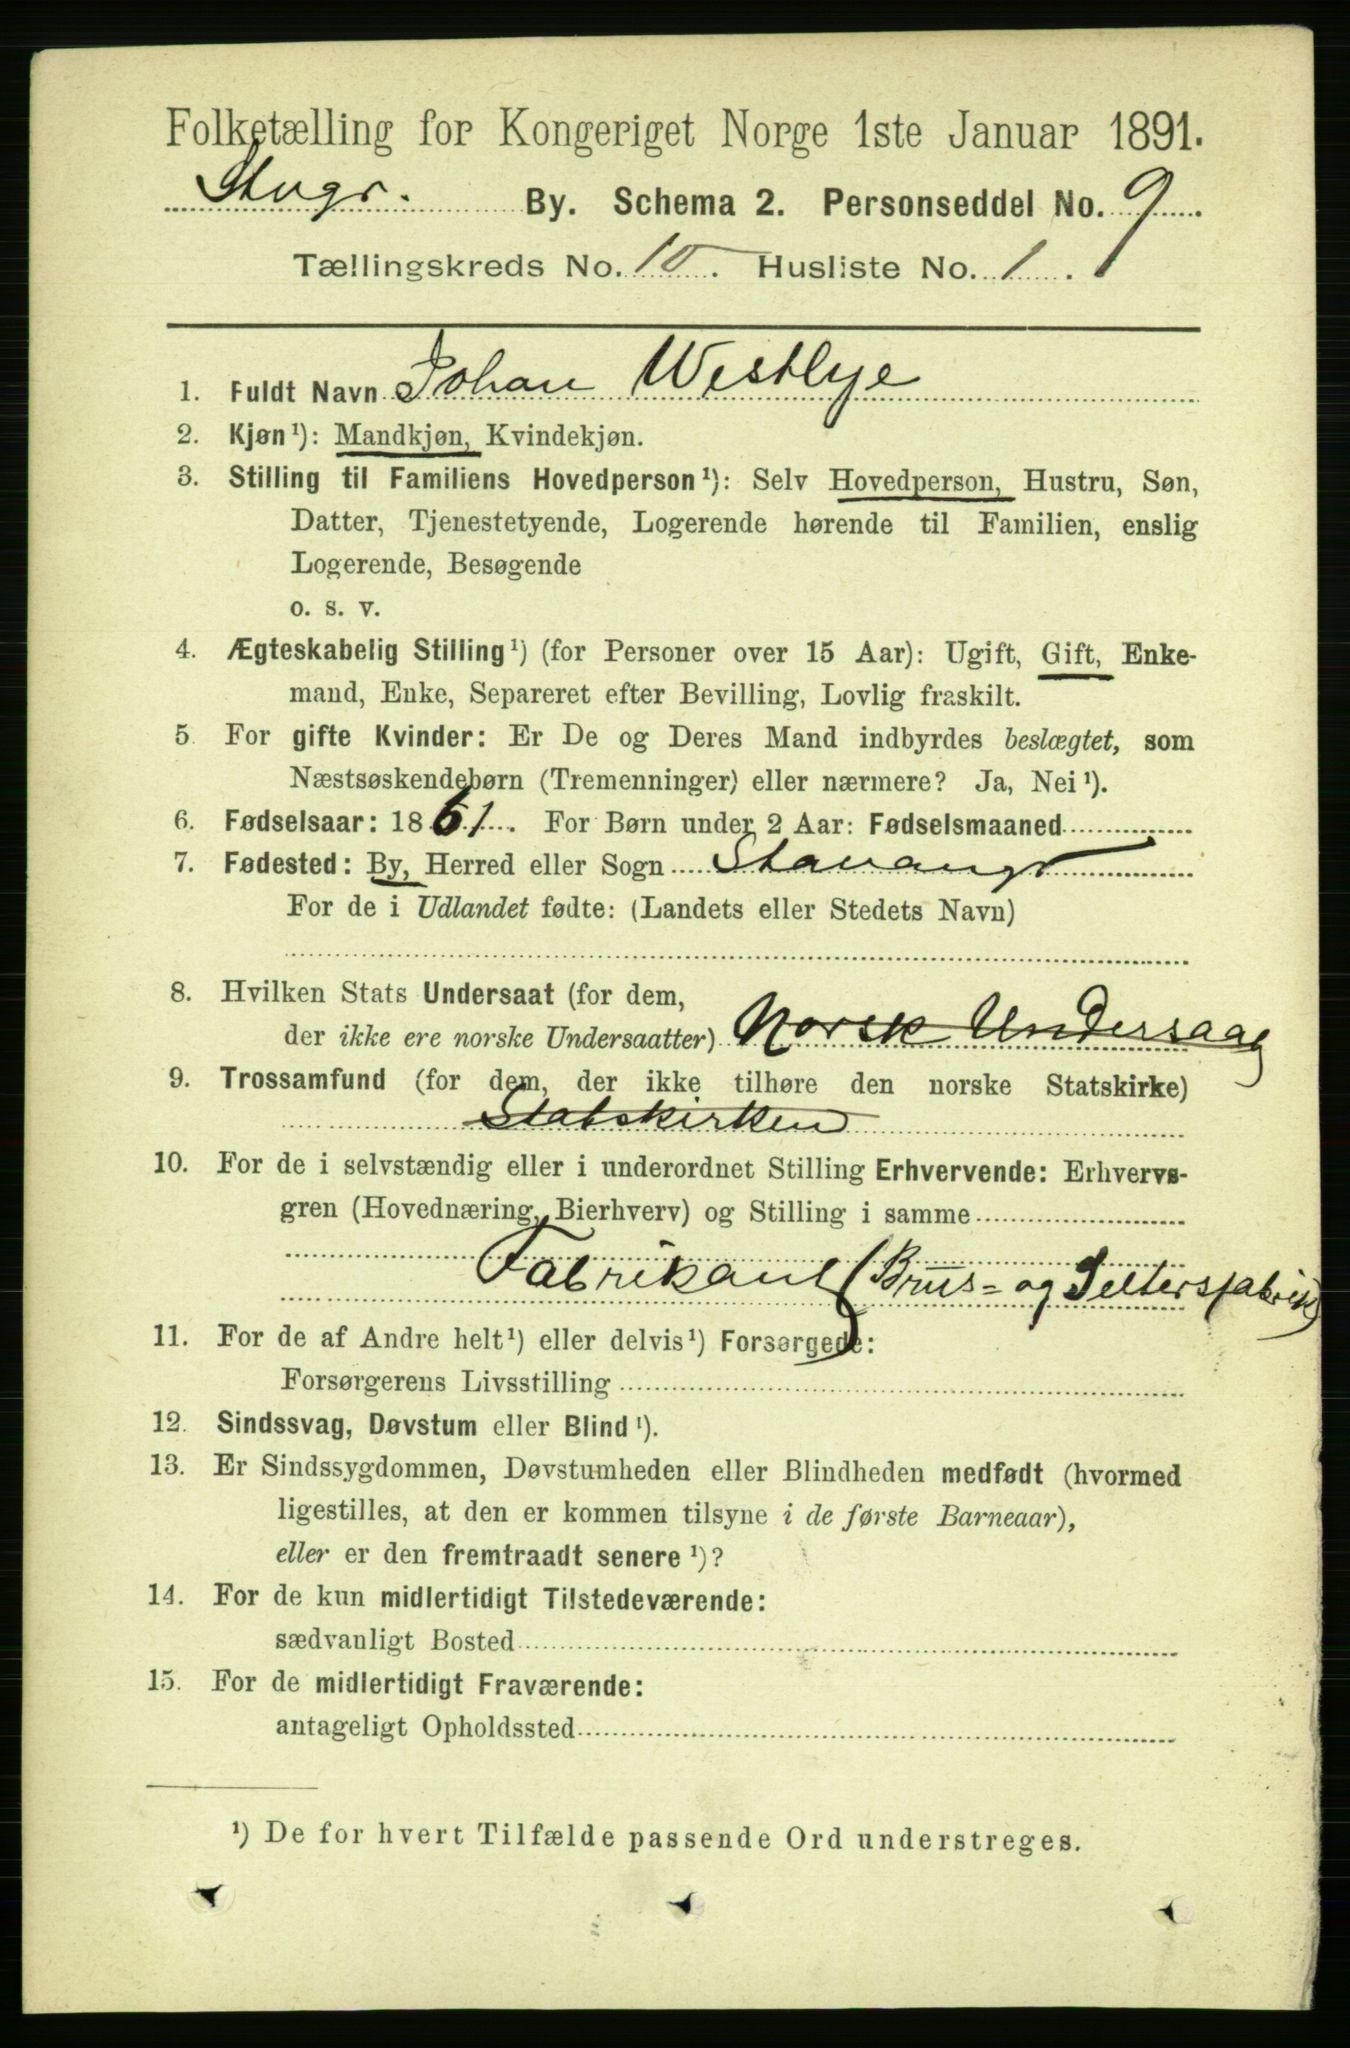 Folketælling for Kongeriget Norge 1ste Januar 1891.
Stvgr. By. Schema 2. Personseddel No. 9
Tællingskreds No. 10. Husliste No. 1.
1. Fuldt Navn Johan Westlye
2. Kjøn ¹): Mandkjøn, Kvindekjøn.
3. Stilling til Familiens Hovedperson ¹): Selv Hovedperson, Hustru, Søn,
Datter, Tjenestetyende, Logerende hørende til Familien, enslig
Logerende, Besøgende
o. s. v.
4. Ægteskabelig Stilling ¹) (for Personer over 15 Aar): Ugift, Gift, Enke-
mand, Enke, Separeret efter Bevilling, Lovlig fraskilt.
5. For gifte Kvinder: Er De og Deres Mand indbyrdes beslægtet, som
Næstsøskendebørn (Tremenninger) eller nærmere? Ja, Nei ¹).
6. Fødselsaar: 1861. For Børn under 2 Aar: Fødselsmaaned
7. Fødested: By, Herred eller Sogn Stavangr
For de i Udlandet fødte: (Landets eller Stedets Navn)
8. Hvilken Stats Undersaat (for dem,
der ikke ere norske Undersaatter) Norsk Undersaag
9. Trossamfund (for dem, der ikke tilhøre den norske Statskirke)
Statskirken
10. For de i selvstændig eller i underordnet Stilling Erhvervende: Erhvervs-
gren (Hovednæring, Bierhverv) og Stilling i samme
Fabrikant (Brus- og Seltersfabrik)
11. For de af Andre helt ¹) eller delvis ¹) Forsørgede:
Forsørgerens Livsstilling
12. Sindssvag, Døvstum eller Blind ¹).
13. Er Sindssygdommen, Døvstumheden eller Blindheden medfødt (hvormed
ligestilles, at den er kommen tilsyne i de første Barneaar),
eller er den fremtraadt senere ¹)?
14. For de kun midlertidigt Tilstedeværende:
sædvanligt Bosted
15. For de midlertidigt Fraværende:
antageligt Opholdssted
¹) De for hvert Tilfælde passende Ord understreges.